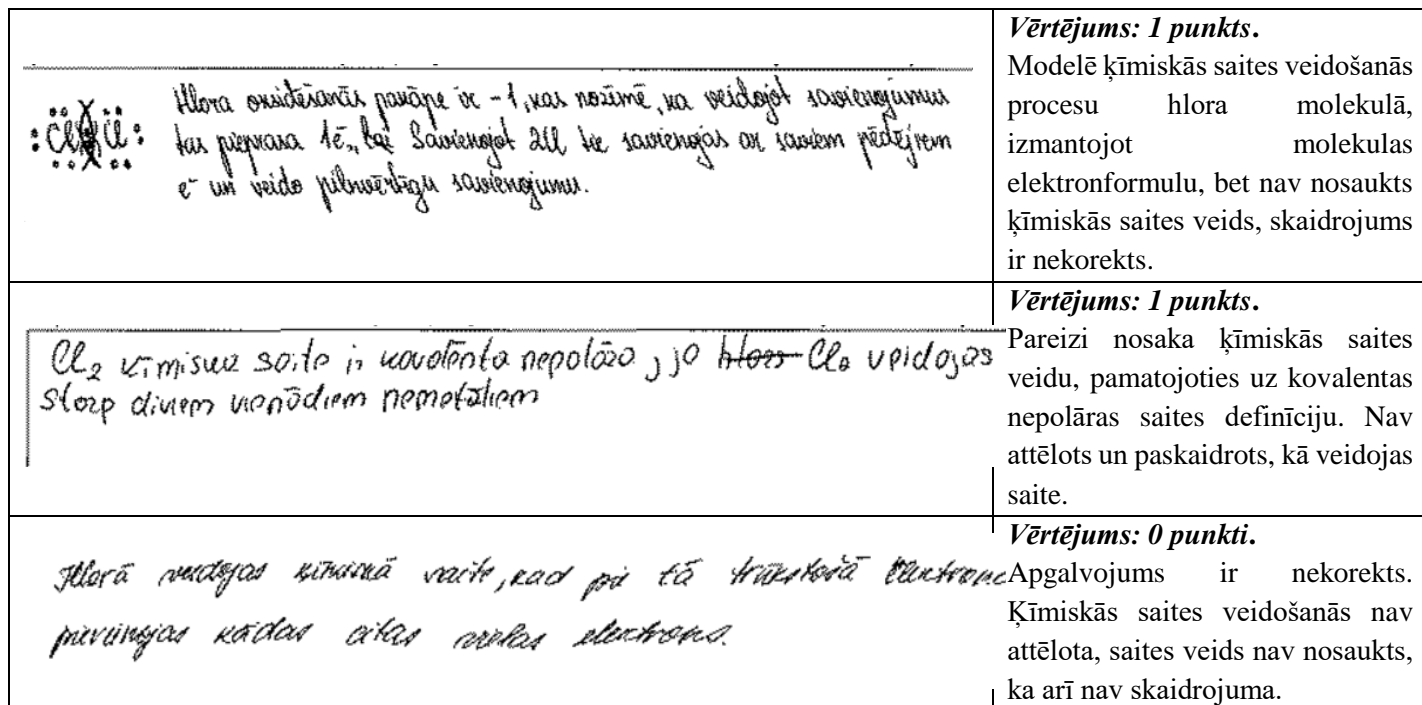 Hlora oksidēšanās pakāpe ir -1, kas nozīmē, ka veidojot savienojumus
:Cl Cl:
tas pieprasa 1ē, lai Savienojot 2Cl tie savienojas ar saviem pēdējiem
e⁻ un veido pilnvērtīgu savienojumu.
Vērtējums: 1 punkts.
Modelē ķīmiskās saites veidošanās
procesu hlora molekulā,
izmantojot molekulas
elektronformulu, bet nav nosaukts
ķīmiskās saites veids, skaidrojums
ir nekorekts.
Cl₂ ķīmiskā saite ir kovalenta nepolāra, jo hlors Cl₂ veidojas
starp diviem vienādiem nemetāliem
Vērtējums: 1 punkts.
Pareizi nosaka ķīmiskās saites
veidu, pamatojoties uz kovalentas
nepolāras saites definīciju. Nav
attēlots un paskaidrots, kā veidojas
saite.
Hlorā veidojas ķīmiskā saite, kad pie tā trūkstošā
pievienojas kādas citas vielas elektrons.
Vērtējums: 0 punkti.
Apgalvojums ir nekorekts.
Ķīmiskās saites veidošanās nav
attēlota, saites veids nav nosaukts,
ka arī nav skaidrojuma.